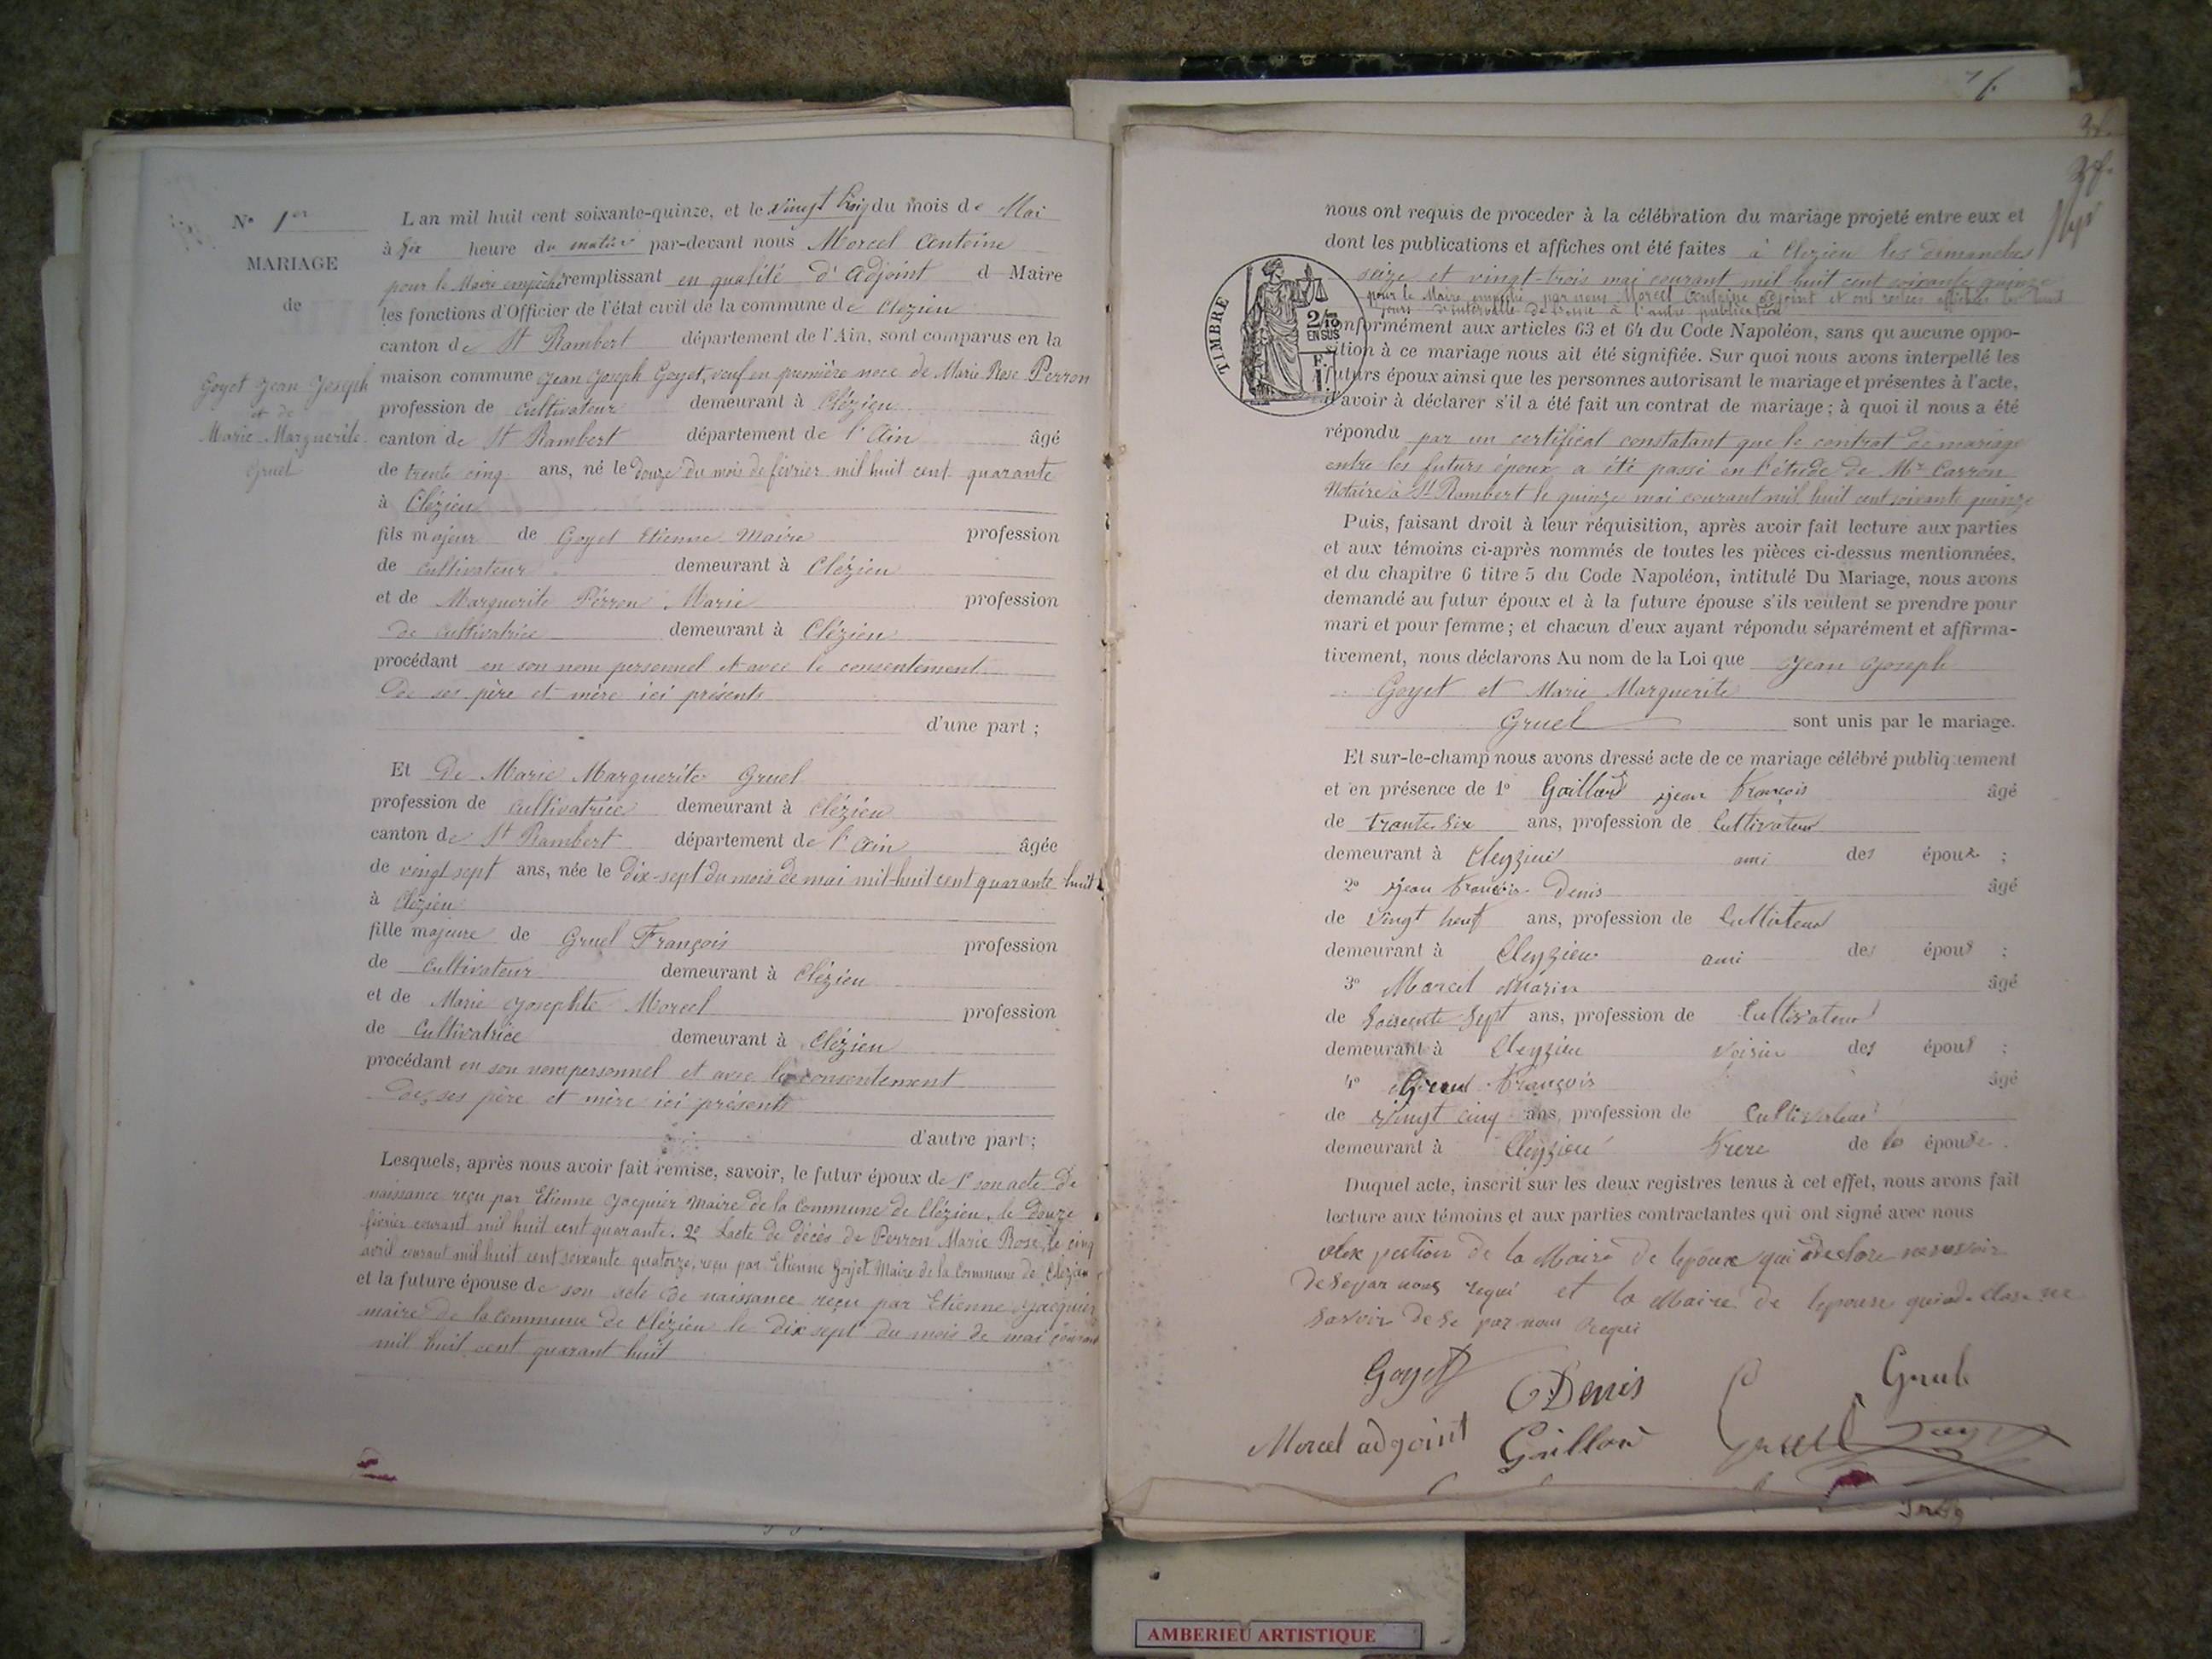 N° 1er
MARIAGE
de
Goyet Jean Joseph
et de
Marie Marguerite
Gruel
L'an mil huit cent soixante-quinze, et le vingt trois du mois de Mai
à six heure du matin par-devant nous Morcel Antoine
pour le Maire empêché remplissant en qualité d'Adjoint d Maire
les fonctions d'Officier de l'état civil de la commune de Clézieu
canton de St Rambert département de l'Ain, sont comparus en la
maison commune Jean Joseph Goyet, veuf en première noce de Marie Rose Perron
profession de cultivateur demeurant à Clézieu
canton de St Rambert département de l'Ain âgé
de trente cinq ans, né le douze du mois de février mil huit cent quarante
à Clézieu
fils majeur de Goyet Etienne Maire profession
de cultivateur demeurant à Clézieu
et de Marguerite Perron Marie profession
de cultivatrice demeurant à Clézieu
procédant en son nom personnel et avec le consentement
de ses père et mère ici présents
d'une part ;
Et De Marie Marguerite Gruel
profession de cultivatrice demeurant à Clézieu
canton de St Rambert département de l'Ain âgée
de vingt sept ans, née le dix-sept du mois de mai mil-huit cent quarante huit
à Clézieu
fille majeure de Gruel François profession
de cultivateur demeurant à Clézieu
et de Marie Josephte Morcel profession
de Cultivatrice demeurant à Clézieu
procédant en son nom personnel et avec le consentement
de ses père et mère ici présents
d'autre part ;
Lesquels, après nous avoir fait remise, savoir, le futur époux de 1° son acte de
naissance reçu par Etienne Jacquier Maire de la Commune de Clézieu, le douze
février courant mil huit cent quarante. 2° L'acte de décès de Perron Marie Rose, le cinq
avril courant mil huit cent soixante quatorze, reçu par Etienne Goyet Maire de la Commune de Clézieu
et la future épouse de son acte de naissance reçu par Etienne Jacquier
maire de la commune de Clézieu le dix sept du mois de mai courant
mil huit cent quarant huit
nous ont requis de proceder à la célébration du mariage projeté entre eux et
dont les publications et affiches ont été faites à Clezieu les dimanches
seize et vingt-trois mai courant mil huit cent soixante quinze
pour le Maire empêché par nous Morcel Antoine adjoint et ont restées affichées les huit
jours d'intervalle de l'une à l'autre publication
TIMBRE
2/10
EN SUS
F.
1
conformément aux articles 63 et 64 du Code Napoléon, sans qu'aucune oppo-
sition à ce mariage nous ait été signifiée. Sur quoi nous avons interpellé les
futurs époux ainsi que les personnes autorisant le mariage et présentes à l'acte,
d'avoir à déclarer s'il a été fait un contrat de mariage ; à quoi il nous a été
répondu par un certificat constatant que le contrat de mariage
entre les futurs époux a été passé en l'étude de Mr Carron
Notaire à St Rambert le quinze mai courant mil huit cent soixante quinze
Puis, faisant droit à leur réquisition, après avoir fait lecture aux parties
et aux témoins ci-après nommés de toutes les pièces ci-dessus mentionnées,
et du chapitre 6 titre 5 du Code Napoléon, intitulé Du Mariage, nous avons
demandé au futur époux et à la future épouse s'ils veulent se prendre pour
mari et pour femme ; et chacun d'eux ayant répondu séparément et affirma-
tivement, nous déclarons Au nom de la Loi que Jean Joseph
Goyet et Marie Marguerite
Gruel sont unis par le mariage.
Et sur-le-champ nous avons dressé acte de ce mariage célébré publiquement
et en présence de 1° Gaillard Jean François âgé
de trante six ans, profession de Cultivateur
demeurant à Cleyzieu ami des époux ;
2° Jean François Denis âgé
de vingt neuf ans, profession de Cultivateur
demeurant à Cleyzieu ami des époux ;
3° Marcel Marin âgé
de soisente sept ans, profession de Cultivateur
demeurant à Cleyzieu voisin des époux ;
4° Gruel François âgé
de vingt cinq ans, profession de Cultivateur
demeurant à Cleyzieu frere de la épouse.
Duquel acte, inscrit sur les deux registres tenus à cet effet, nous avons fait
lecture aux témoins et aux parties contractantes qui ont signé avec nous
de la Maire de lepoux qui declare ne savoir
de se par nous requi et la Maire de lepouse qui a declare ne
savoir de se par nous requi
Goyet
Denis
Gruel
Morcel adjoint
Gaillard
Gruel
AMBERIEU ARTISTIQUE